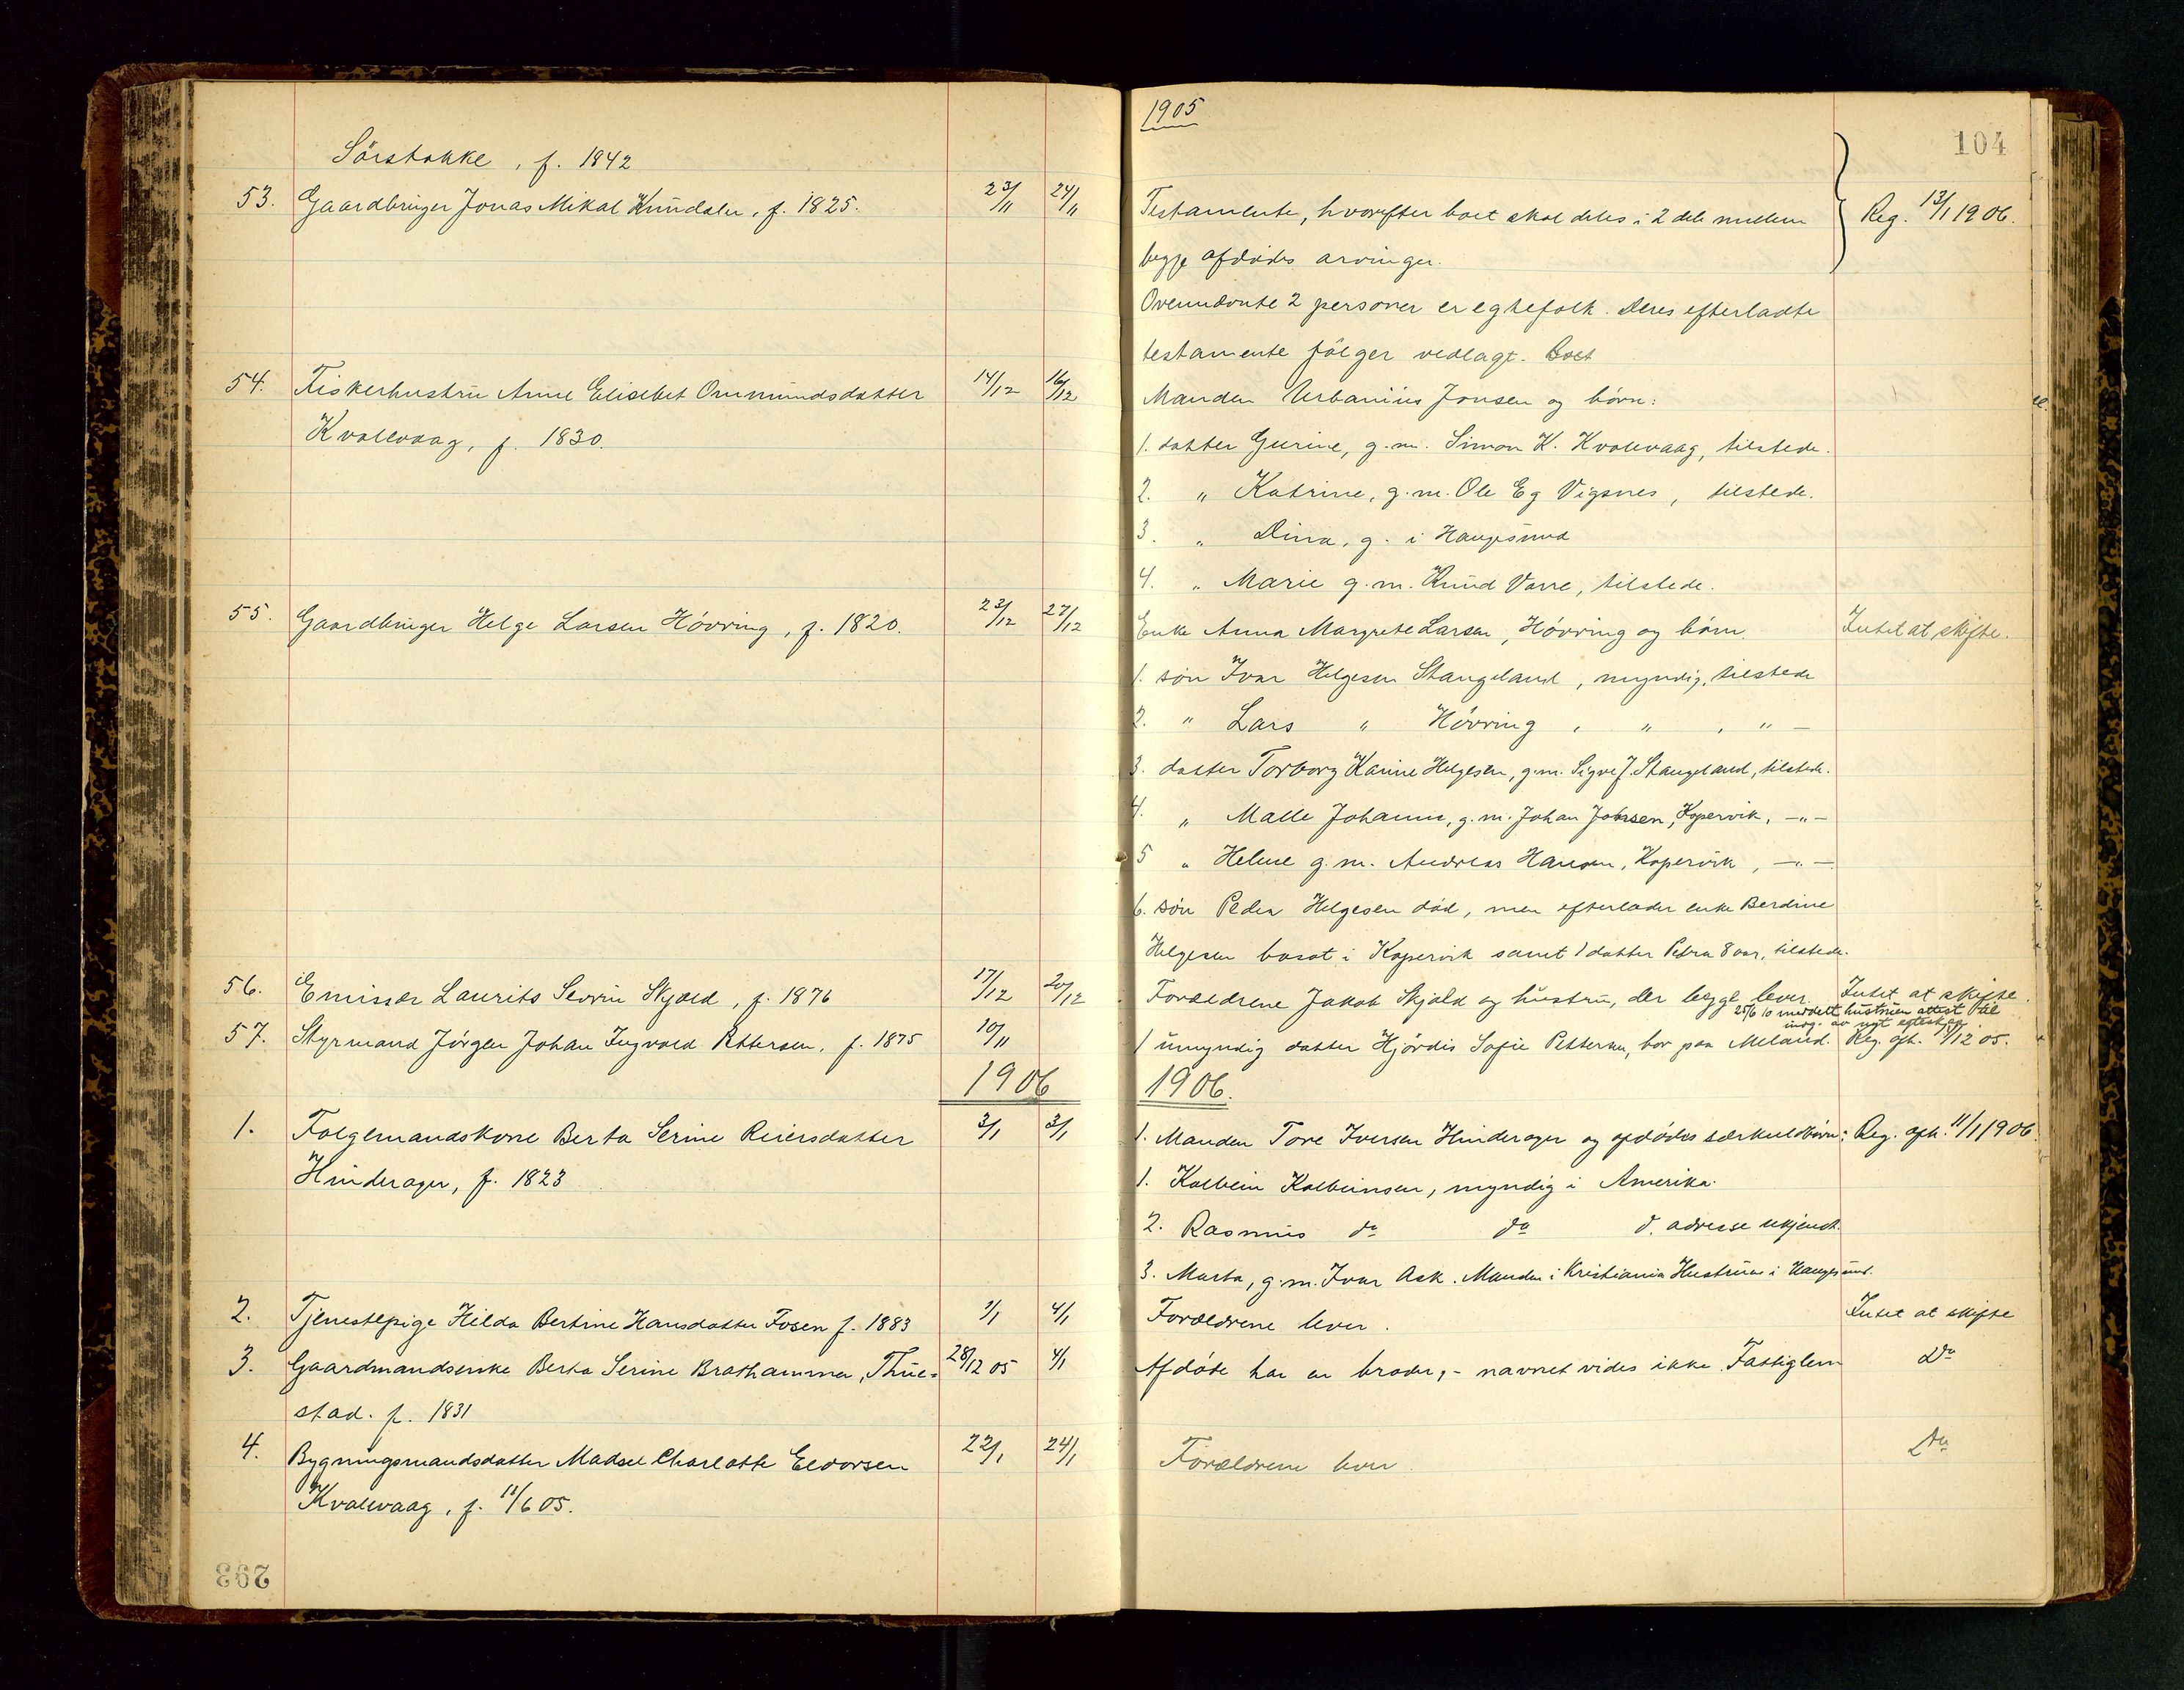 Sörstokke, f. 1842
53. Gaardbruger Jonas Mikal Knudsen, f. 1825. 23/11 24/11
54. Fiskerhustru Anne Elisebet Ommundsdatter 14/12 16/12
Kvalevaag, f. 1830.
55. Gaardbruger Helge Larsen Hövring, f. 1820. 23/12 27/12
56. Emissær Laurits Severin Skjold, f. 1876 17/12 20/12
57. Styrmand Jörgen Johan Ingvald Pettersen, f. 1875 10/11
1906
1. Folgemandskone Berta Serine Reiersdatter 3/1 3/1
Hinderager, f. 1823
2. Tjenestepige Hilda Bertine Hansdatter Fosen f. 1883 1/1 4/1
3. Gaardmandsenke Berta Serine Brathammer, Thue= 28/12 05 4/1
stad. f. 1831
4. Bygningsmandsdatter Madsel Charlotte Eldorsen 22/1 24/1
Kvalevaag, f. 11/6 05.
293
1905
104
Testamente, hvorefter boet skal deles i 2 dele mellem Reg. 13/1 1906.
begge afdödes arvinger.
Ovennævnte 2 personer er egtefolk. Deres efterladte
testamente fölger vedlagt. Boet
Manden Urbanius Jonsen og börn:
1. datter Gurine, g. m. Simon K. Kvalevaag, tilstede.
2. " Katrine, g. m. Ole Eg Vigsnes, tilstede.
3. " Dina, g. i Haugesund
4. " Marie g. m. Knud Vorre, tilstede.
Enke Anna Margrete Larsen, Hövring og börn. Intet at skifte.
1. sön Ivar Helgesen Stangeland, myndig, tilstede
2. " Lars " Hövring, " , " –
3. datter Torborg Karine Helgesen, g. m. Sigve J. Stangeland, tilstede.
4. " Malle Johanne, g. m. Johan Johnsen, Kopervik, –"–
5 " Helene g. m. Andreas Hansen, Kopervik, –"–
6. sön Peder Helgesen död, men efterlader enke Berdine
Helgesen bosat i Kopervik samt 1 datter Petra 8 aar, tilstede.
Forældrene Jakob Skjold og hustru, der begge lever. Intet at skifte.
25/6 10 meddelt hustruen attest til
1 umyndig datter Hjördis Sofie Pettersen, bor paa Meland. Reg. oph. 11/12 05.
1906.
1. Manden Tore Iversen Hinderager og afdödes særkuldbörn: Reg. oph. 11/1 1906.
1. Kolbein Kolbeinsen, myndig i Amerika.
2. Rasmus do do d. adresse ukjendt.
3. Marta, g. m. Ivar Ask. Manden i Kristiania Hustruen i Haugesund.
Forældrene lever. Intet at skifte
Afdöde har en broder, – navnet vides ikke. Fattiglem Do
Forældrene lever. Do